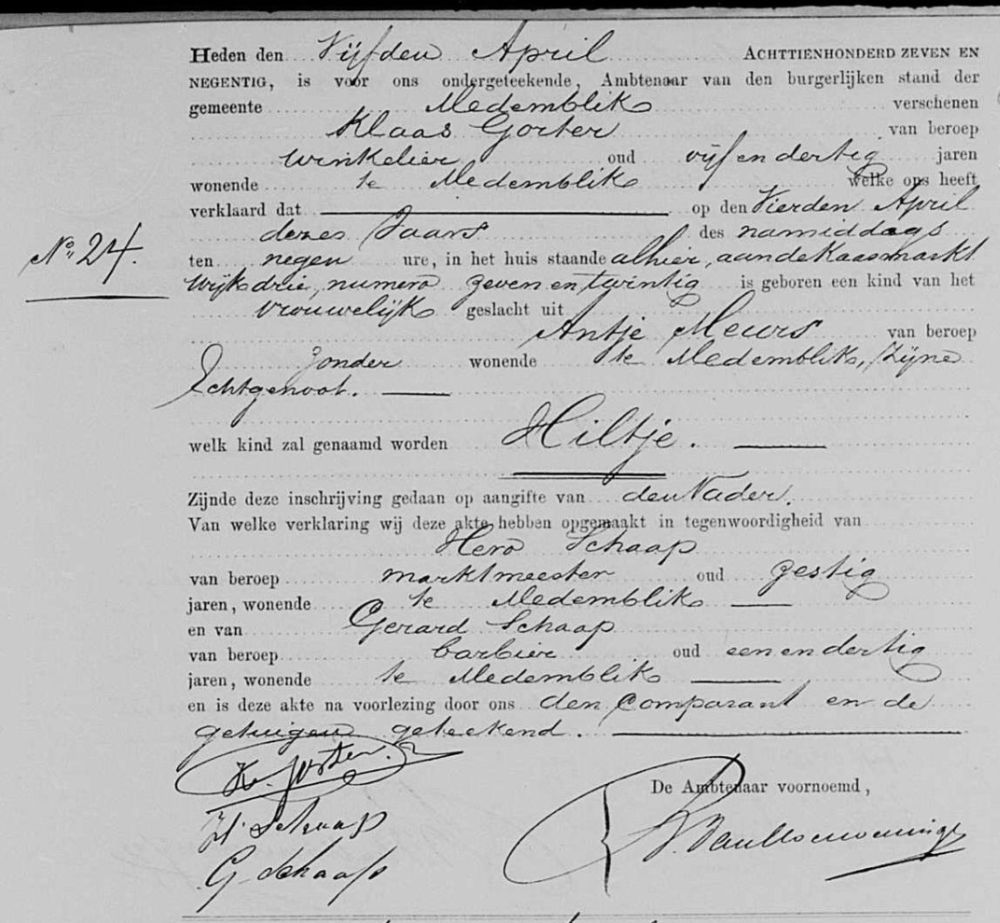 Heden den Vijfden April ACHTTIENHONDERD ZEVEN EN
NEGENTIG, is voor ons ondergeteekende, Ambtenaar van den burgerlijken stand der
gemeente Medemblik verschenen
Klaas Gorter van beroep
winkelier oud vijf en dertig jaren
wonende te Medemblik welke ons heeft
verklaard dat op den Vierden April
dezes Jaars des namiddags
No. 24. ten negen ure, in het huis staande alhier, aan de Kaasmarkt
Wijk drie, numero zeven en twintig is geboren een kind van het
vrouwelijk geslacht uit
Antje Meurs van beroep
zonder wonende te Medemblik, zijne
Echtgenoot.
welk kind zal genaamd worden Hiltje.
Zijnde deze inschrijving gedaan op aangifte van den Vader.
Van welke verklaring wij deze akte hebben opgemaakt in tegenwoordigheid van
Hero Schaap
van beroep marktmeester oud zestig
jaren, wonende te Medemblik
en van Gerard Schaap
van beroep barbier oud een en dertig
jaren, wonende te Medemblik
en is deze akte na voorlezing door ons den Comparant en de
getuigen geteekend.
K. Gorter.
De Ambtenaar voornoemd,
H. Schaap
G. Schaap